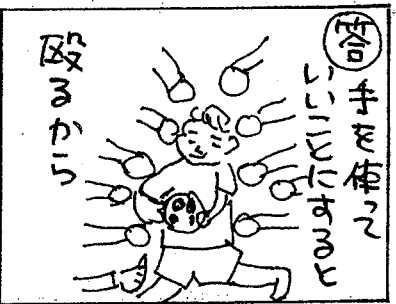 答
手を使って
いいことにすると
殴るから